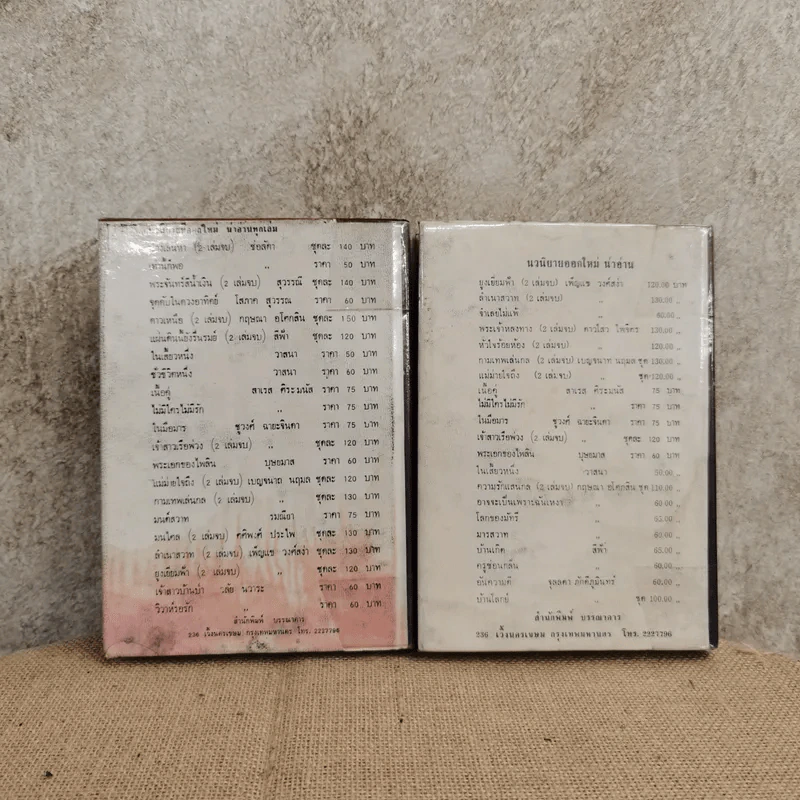 น่าอ่านทุกเล่ม
(2 เล่มจบ) ช่อลัดา ชุดละ 140 บาท
,, ราคา 50 บาท
พระจันทร์สีน้ำเงิน (2 เล่มจบ) สุวรรณี ชุดละ 140 บาท
จุดดับในดวงอาทิตย์ โสภาค สุวรรณ ราคา 60 บาท
ดาวเหนือ (2 เล่มจบ) กฤษณา อโศกสิน ชุดละ 150 บาท
แผ่นดินนี้ยังรื่นรมย์ (2 เล่มจบ) สีฟ้า ชุดละ 120 บาท
ในเสี้ยวหนึ่ง วาสนา ราคา 50 บาท
ชั่วชีวิตหนึ่ง วาสนา ราคา 60 บาท
เนื้อคู่ สาเรส ศิระมนัส ราคา 75 บาท
ไม่มีใครไม่มีรัก ,, ราคา 75 บาท
ในมือมาร ชูวงศ์ ฉายะจินดา ราคา 75 บาท
เจ้าสาวเรือพ่วง (2 เล่มจบ) ,, ชุดละ 120 บาท
พระเอกของไพลิน บุษยมาส ราคา 60 บาท
แม่ม่ายใจถึง (2 เล่มจบ) เบญจนาถ นฤมล ชุดละ 120 บาท
กามเทพเล่นกล (2 เล่มจบ) ,, ชุดละ 130 บาท
มนต์สวาท รมณียา ราคา 75 บาท
(2 เล่มจบ) ศศิพงศ์ ประไพ ชุดละ 130 บาท
ลำเนาสวาท (2 เล่มจบ) เพ็ญแข วงศ์สง่า ชุดละ 130 บาท
ยูงเยี่ยมฟ้า (2 เล่มจบ) ,, ชุดละ 120 บาท
เจ้าสาวบ้านป่า วลัย นวาระ ราคา 60 บาท
วิวาห์รอยรัก ,, ราคา 60 บาท
สำนักพิมพ์ บรรณาคาร
236 เวิ้งนครเขษม กรุงเทพมหานคร โทร. 2227796
นวนิยายออกใหม่ น่าอ่าน
ยูงเยี่ยมฟ้า (2 เล่มจบ) เพ็ญแข วงศ์สง่า 120.00 บาท
ลำเนาสวาท (2 เล่มจบ) ,, 130.00 ,,
จำเลยไม่แพ้ ,, 60.00 ,,
พระเจ้าหลงทาง (2 เล่มจบ) ดาวไสว ไพจิตร 130.00 ,,
หัวใจร้อยห้อง (2 เล่มจบ) ,, 120.00 ,,
กามเทพเล่นกล (2 เล่มจบ) เบญจนาถ นฤมล ชุด 130.00 ,,
แม่ม่ายใจถึง (2 เล่มจบ) ,, ชุด 120.00 ,,
เนื้อคู่ สาเรส ศิระมนัส 75 บาท
ไม่มีใครไม่มีรัก ,, ราคา 75 บาท
ในมือมาร ชูวงศ์ ฉายะจินดา ราคา 75 บาท
เจ้าสาวเรือพ่วง (2 เล่มจบ) ,, ชุดละ 120 บาท
พระเอกของไพลิน บุษยมาส ราคา 60 บาท
ในเสี้ยวหนึ่ง วาสนา 50.00 ,,
ความรักแสนกล (2 เล่มจบ) กฤษณา อโศกสิน ชุด 110.00 ,,
อาจจะเป็นเพราะฉันเหงา ,, 60.00 ,,
โลกของมัทรี ,, 55.00 ,,
มารสวาท ,, 60.00 ,,
บ้านเกิด สีฟ้า 65.00 ,,
ครูซ่อนกลิ่น ,, 60.00 ,,
ยันความดี จุลลดา ภักดีภูมินทร์ 60.00 ,,
บ้านโลกย์ ,, ชุด 100.00 ,,
สำนักพิมพ์ บรรณาคาร
236 เวิ้งนครเขษม กรุงเทพมหานคร โทร. 2227796